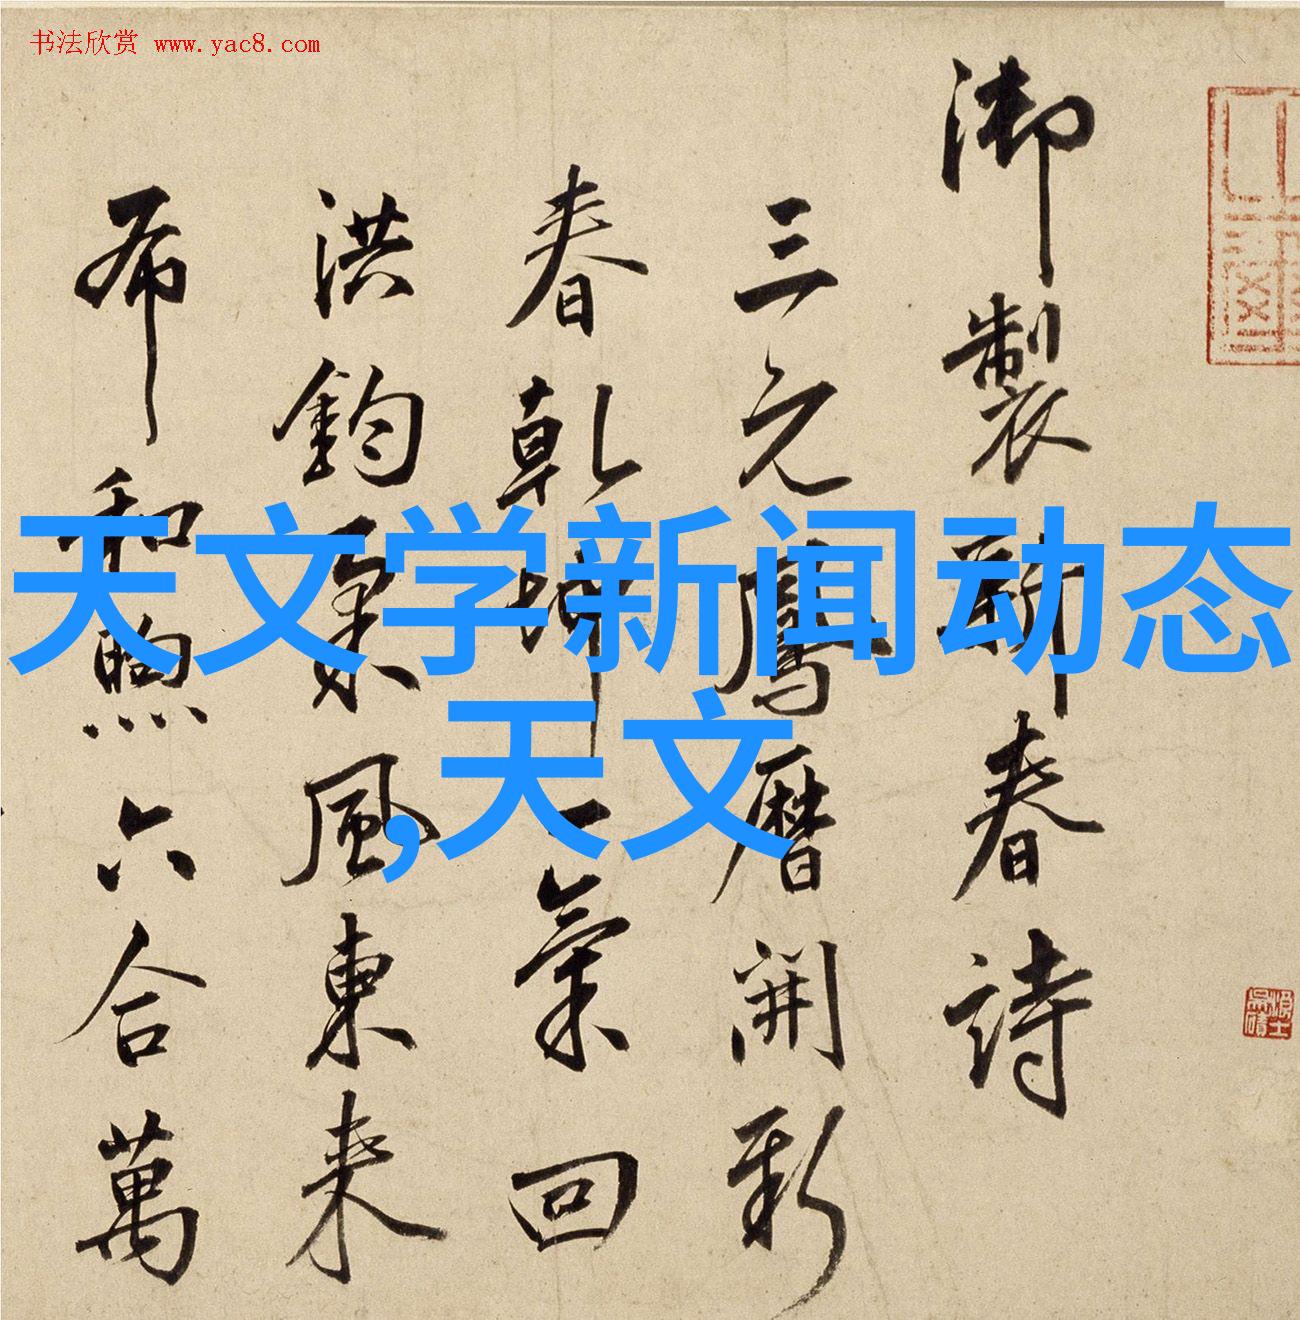 书法欣赏 www.yac8.com
御製新春詩
三元鳳曆開新
春乾坤一氣回
洪鈞
風東来
布和煦六合萬
天文学新闻动态
,天文